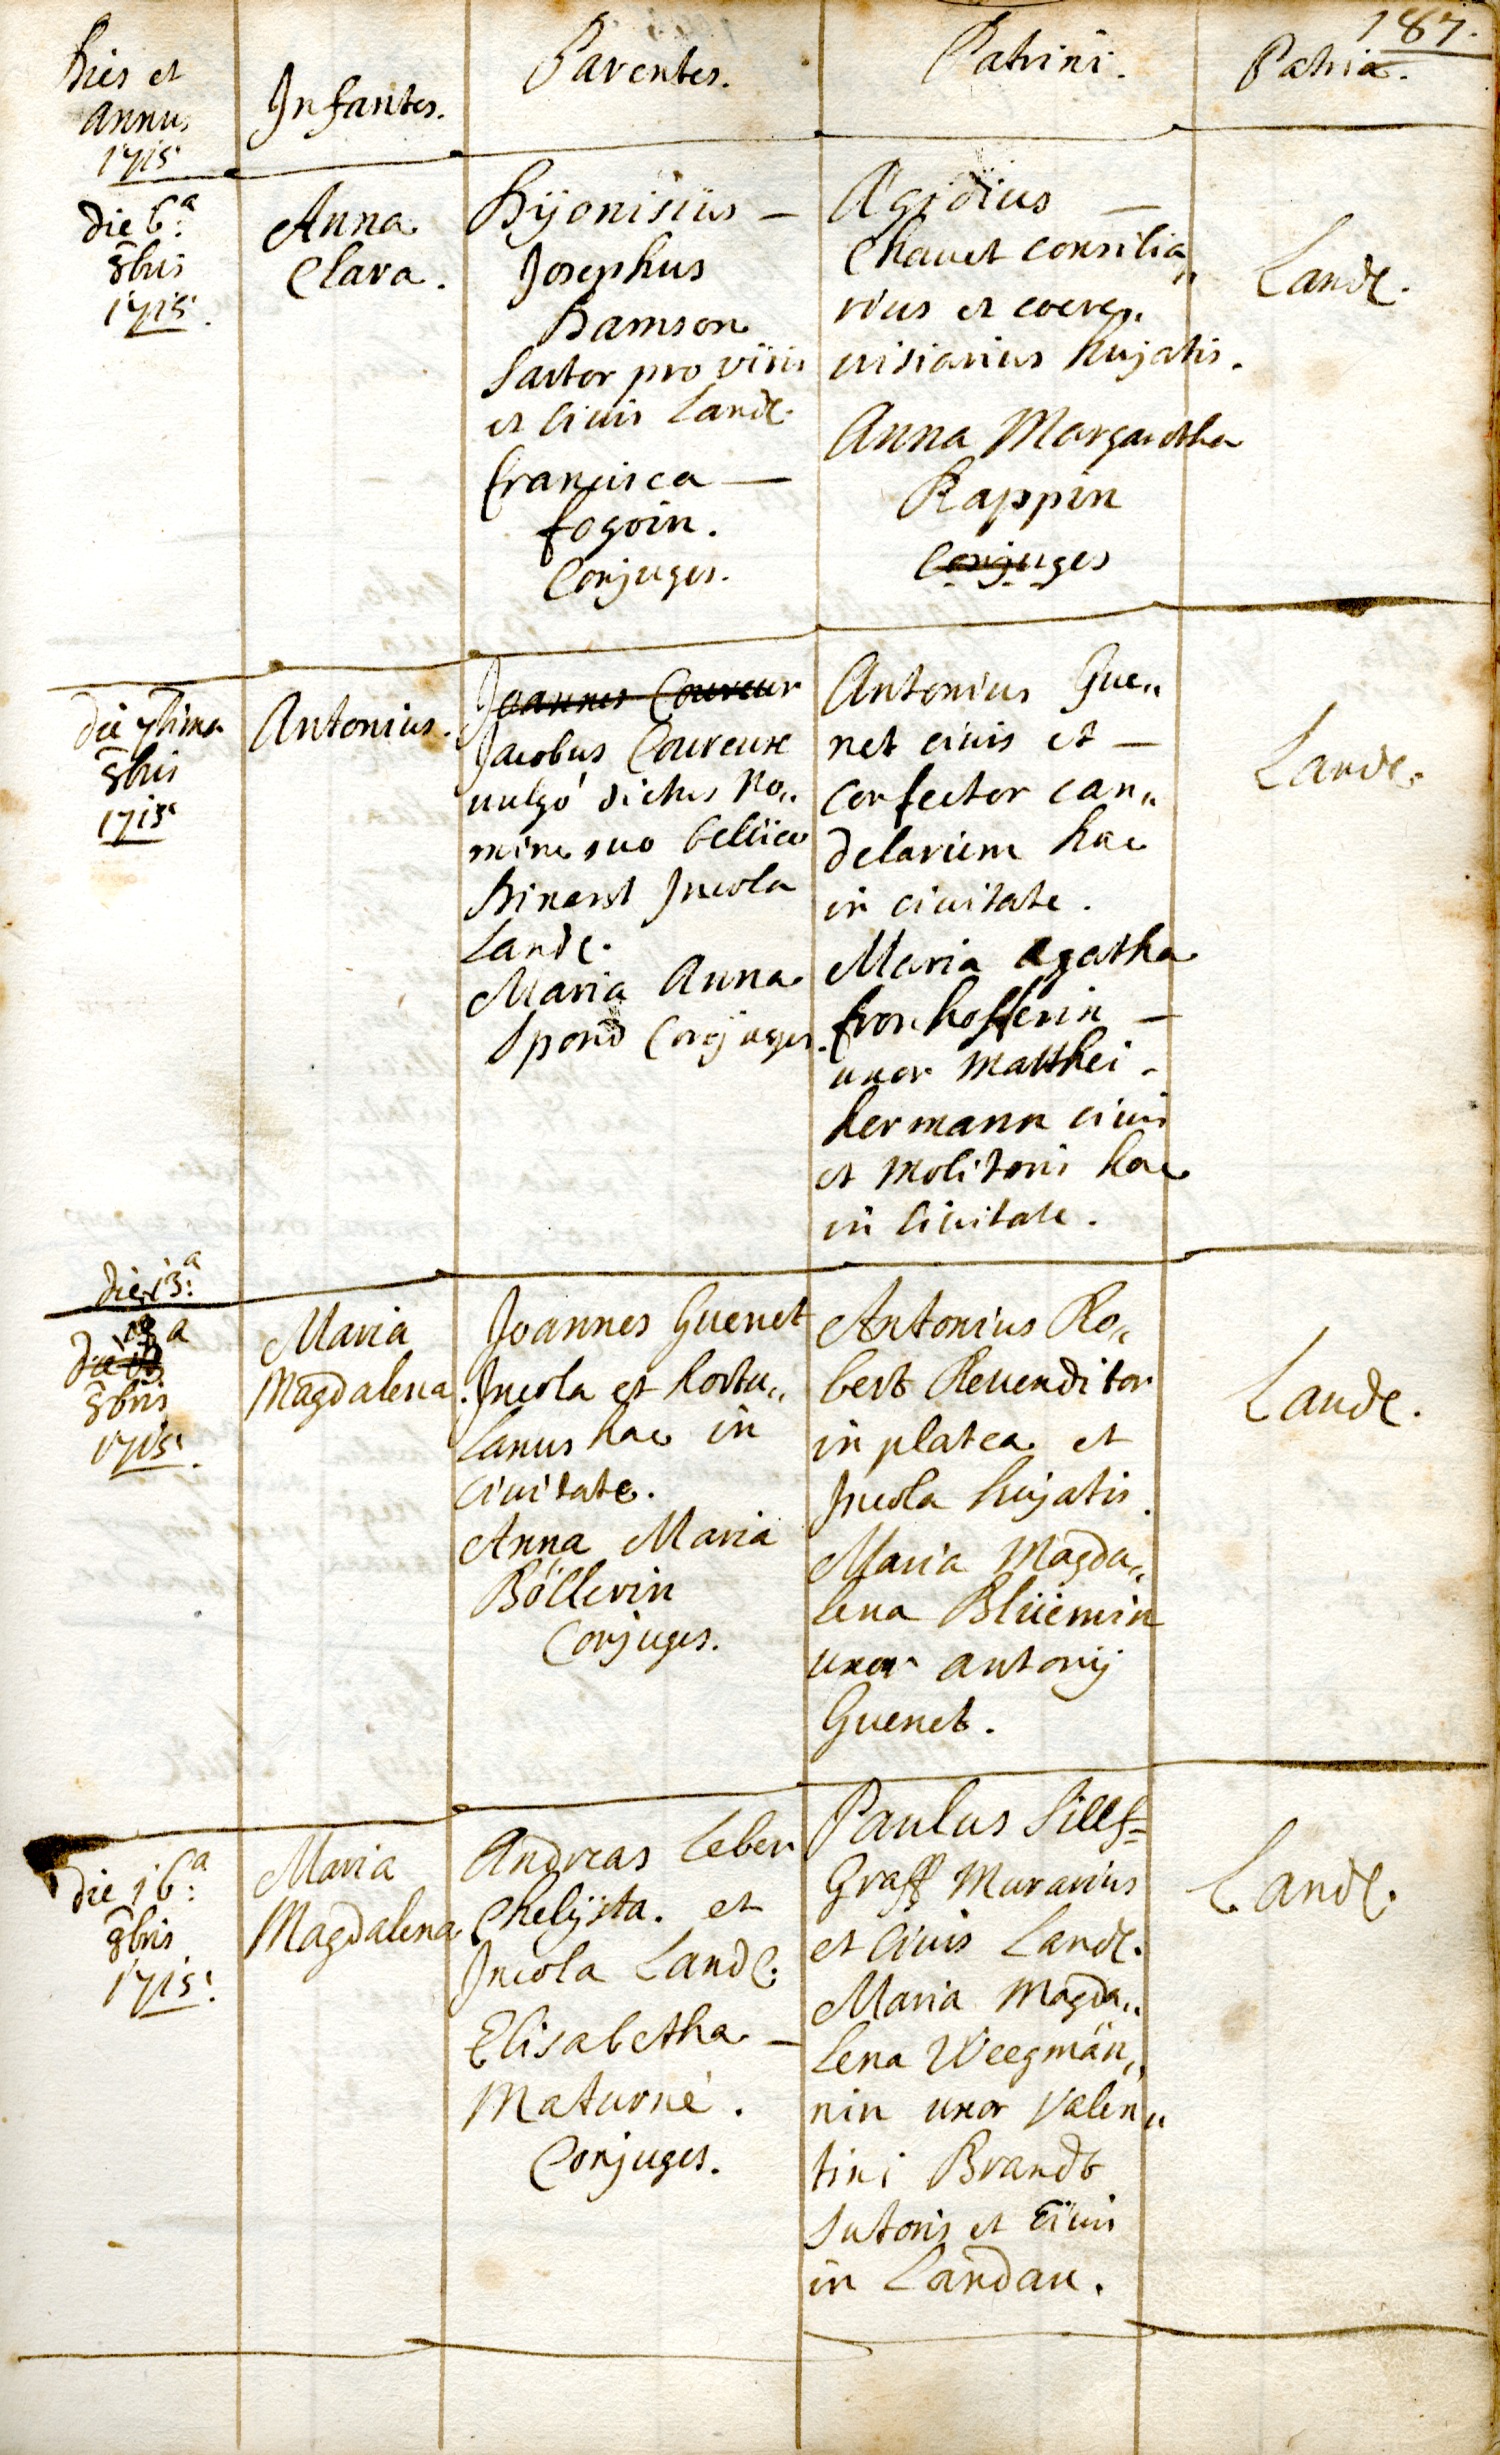 187.
Dies et
annus
1715
Infantes.
Parentes.
Patrini.
Patria.
die 6:a
8bris
1715.
Anna
Clara.
Dyonisius —
Josephus
Damson
Sartor pro viris
et civis Land:
francisca —
fogoin.
Conjuges.
Ægidius —
Chauet consilia„
rius et coere„
visiarius hujatis.
Anna Margaretha
Rappin
Conjuges
Land:
die 7tima
8bris
1715
Antonius.
Joannes Coureur
Jacobus Coureux
vulgó dictus no„
mine suo bellico
Incola
Land:
Maria Anna
Spond Conjuges.
Antonius Gue„
net civis et —
confector can„
delarum hac
in civitate.
Maria Agatha
fronhofferin —
uxor Matthei
hermann civis
et molitoris hac
in civitate.
Land:
die 13:a
8bris
1715.
Maria
Magdalena.
Joannes Guenet
Incola et hortu„
lanus hac in
civitate.
Anna Maria
Böllerin
Conjuges.
Antonius Ro„
bert Revenditor
in platea et
Incola hujatis.
Maria Magda„
lena Blüemin
uxor antonij
Guenet.
Land:
die 16:a
8bris
1715.
Maria
Magdalena
Andreas Leber
Chelysta. et
Incola Land:
Elisabetha —
Maturné.
Conjuges.
Paulus Sills=
Graff Murarius
et civis Land:
Maria Magda„
lena Weegmän„
nin uxor Valen„
tini Brandt
Sutoris et civis
in Landau.
Land: